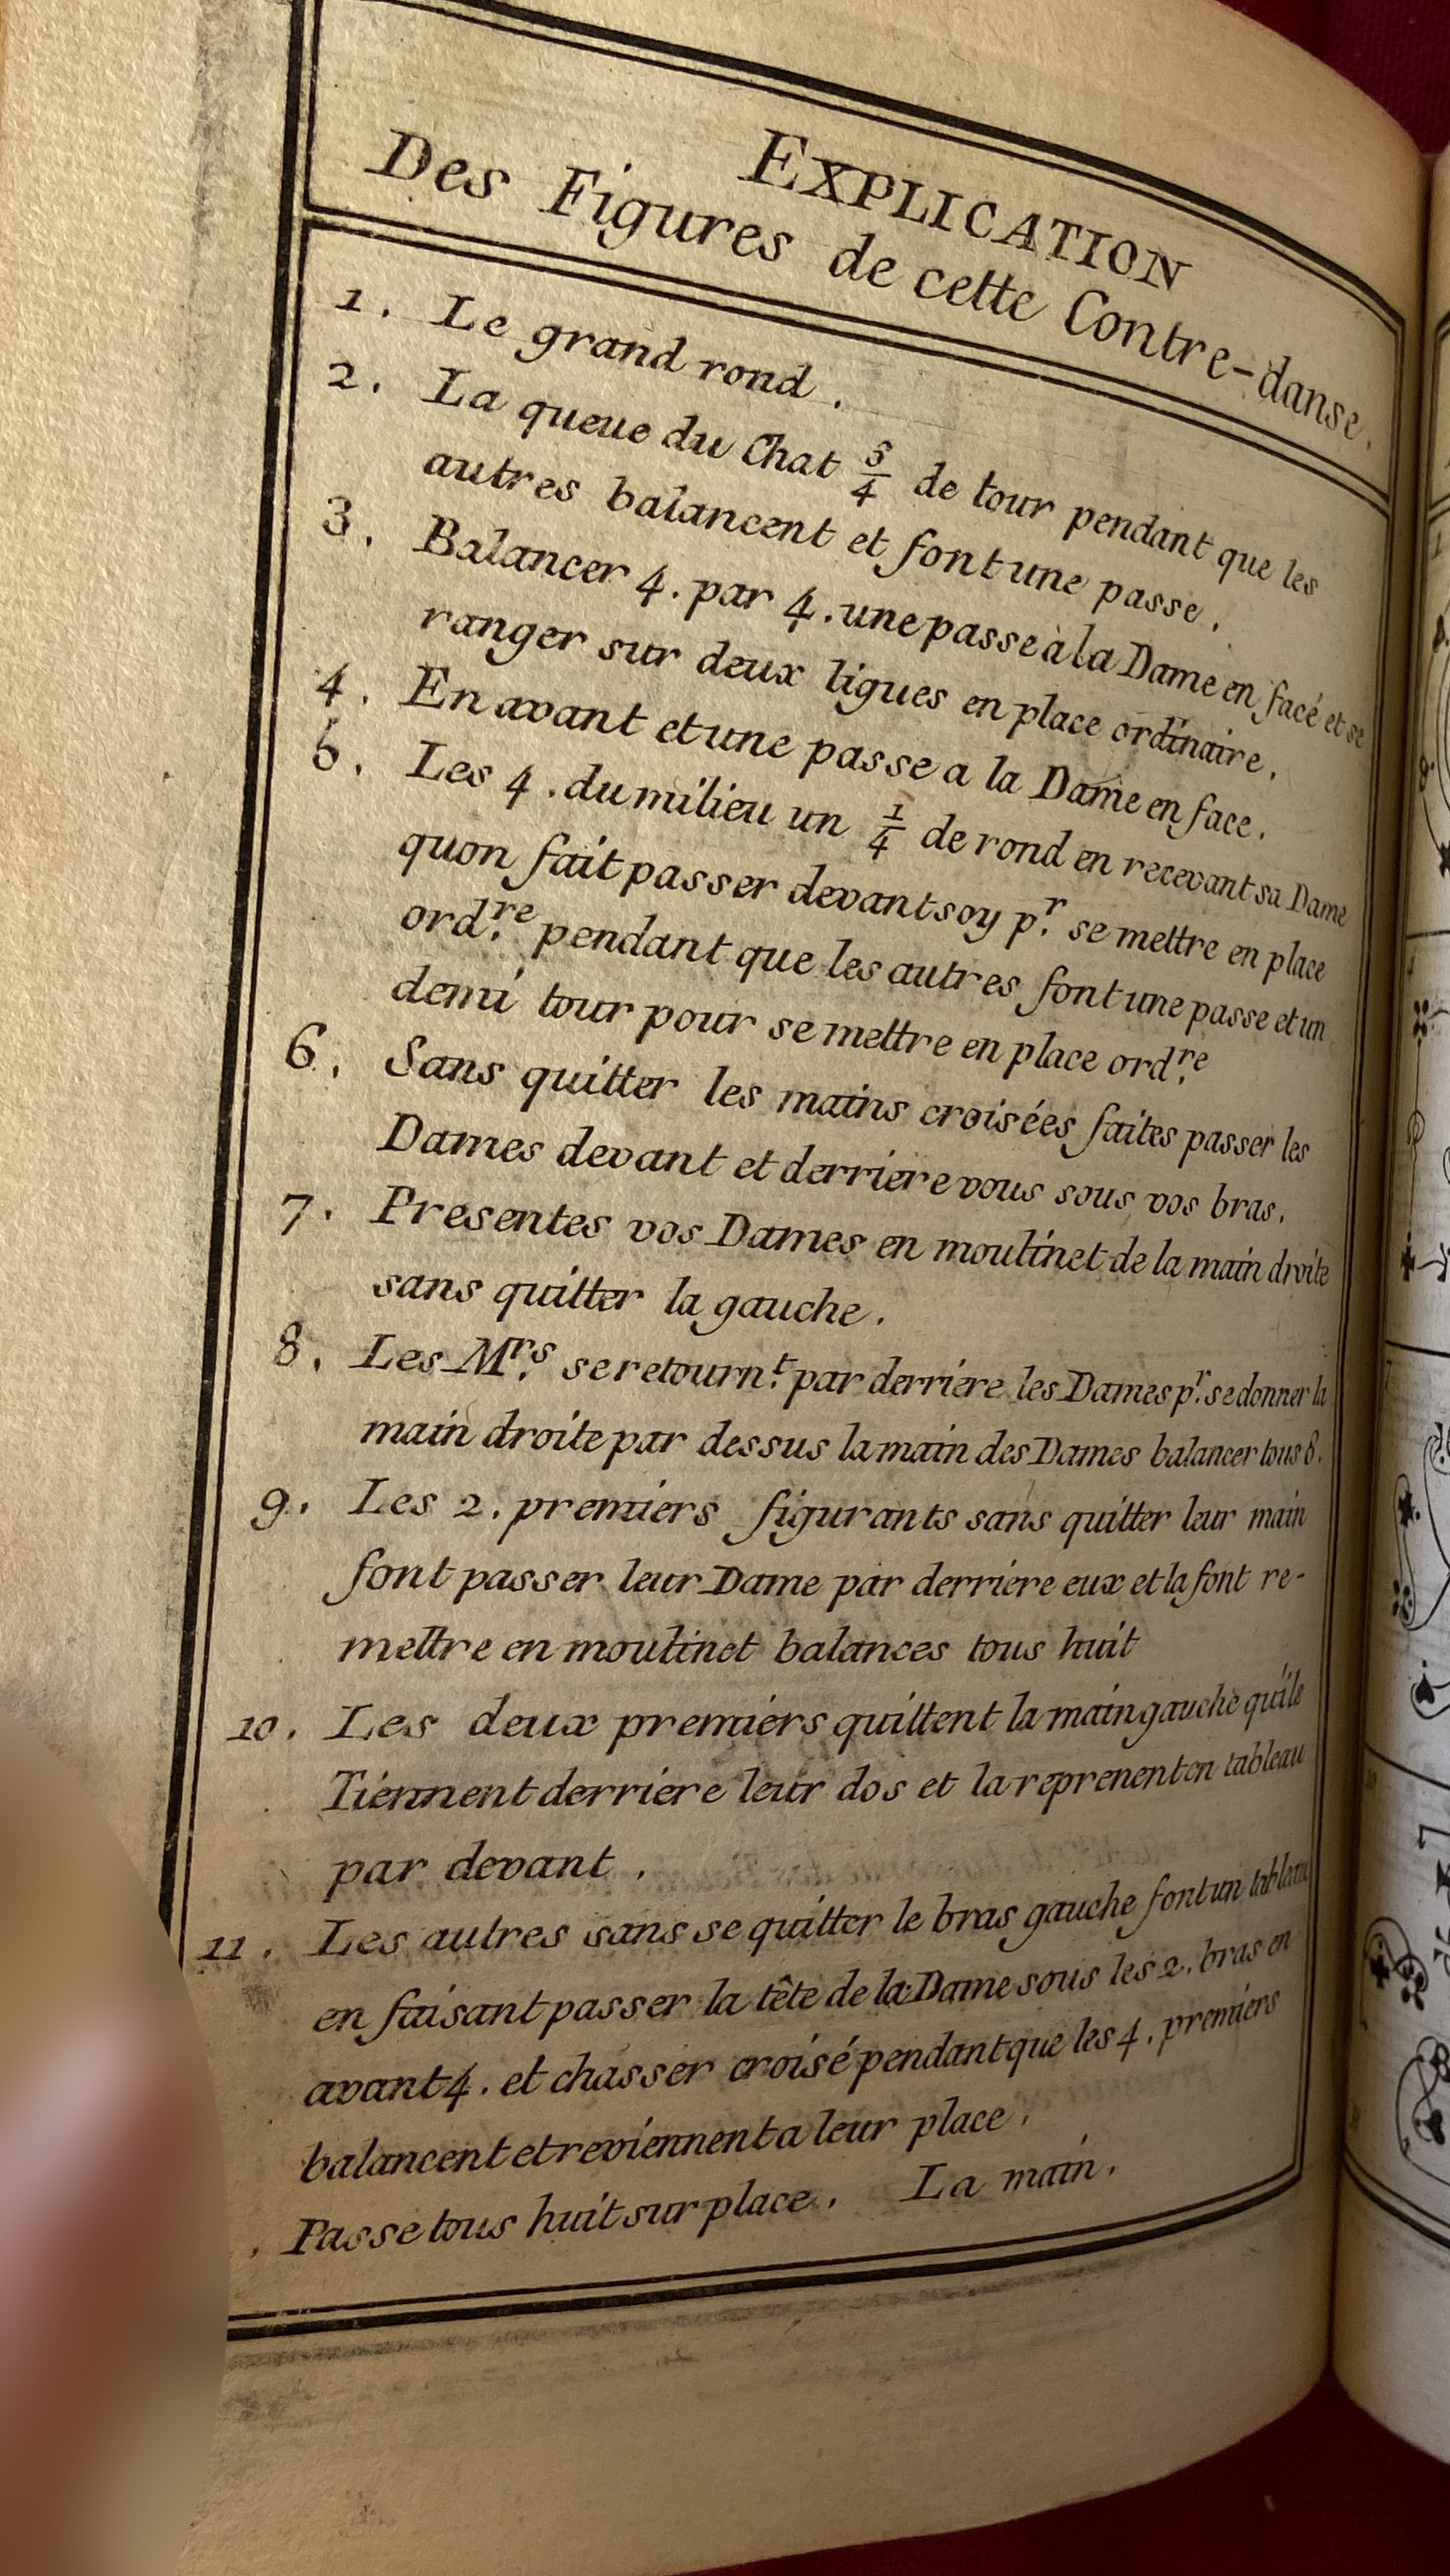 EXPLICATION
Des Figures de cette Contre-danse.
1. Le grand rond.
2. La queue du Chat 5/4 de tour pendant que les
autres balancent et font une passe.
3. Balancer 4. par 4. une passe à la Dame en facé et se
ranger sur deux ligues en place ordinaire.
4. En avant et une passe a la Dame en face.
5. Les 4. du milieu un 1/4 de rond en recevant sa Dame
quon fait passer devant soy pr. se mettre en place
ordre. pendant que les autres font une passe et un
demi tour pour se mettre en place ordre.
6. Sans quitter les mains croisées faites passer les
Dames devant et derriere vous sous vos bras.
7. Presentes vos Dames en moulinet de la main droite
sans quitter la gauche.
8. Les Mrs. se retournt. par derriére les Dames pr. se donner la
main droite par dessus la main des Dames balancer tous 8.
9. Les 2. premiers figurants sans quitter leur main
font passer leur Dame par derriere eux et la font re-
mettre en moulinet balances tous huit
10. Les deux premiers quittent la main gauche qu'ils
Tiennent derriere leur dos et la reprenent en tableau
par devant.
11. Les autres sans se quitter le bras gauche font un tableau
en faisant passer la tête de la Dame sous les 2. bras en
avant 4. et chasser croisé pendant que les 4. premiers
balancent et reviennent a leur place.
. Passe tous huit sur place. La main.